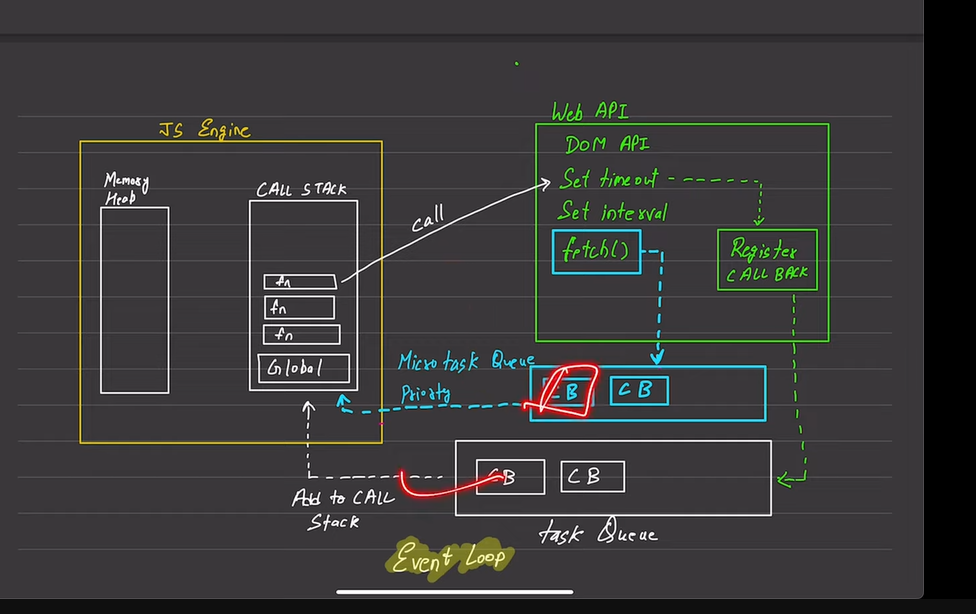 JS Engine
Memory
Heab
CALL STACK
fn
fn
fn
Global
call
Web API
DOM API
Set timeout
Set interval
fetch()
Register
CALL BACK
Microtask Queue
Priority
CB
CB
CB
CB
Add to CALL
Stack
task Queue
Event Loop